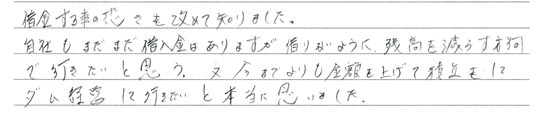 借金する事の恐さを改めて知りました。
自社もまだまだ借入金はありますが借りないように、残高を減らす方向
で行きたいと思う。又今までよりも金額を上げて積立をして
ダム経営して行きたいと本当に思いました。